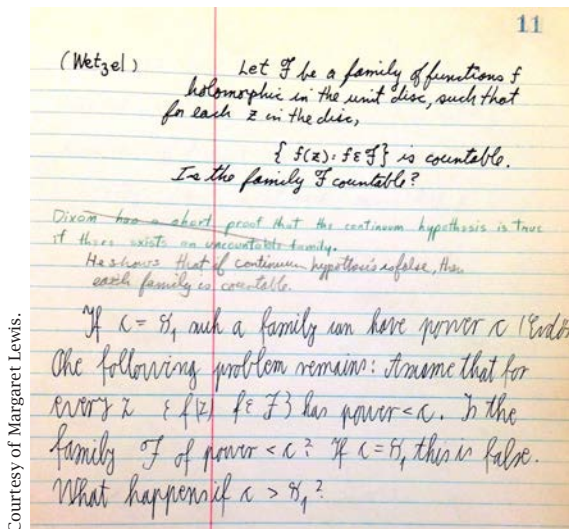 11
(Wetzel)
Let ℱ be a family of functions f
holomorphic in the unit disc, such that
for each z in the disc,
{ f(z) : f ε ℱ } is countable.
Is the family ℱ countable?
Dixon has a short proof that the continuum hypothesis is true
if there exists an uncountable family.
He shows that if continuum hypothesis is false, then
each family is countable.
If c = ℵ₁ such a family can have power c (Erdős
The following problem remains: Assume that for
every z { f(z) f ε ℱ } has power < c. Is the
family ℱ of power < c? If c = ℵ₁ this is false.
What happens if c > ℵ₁?
Courtesy of Margaret Lewis.